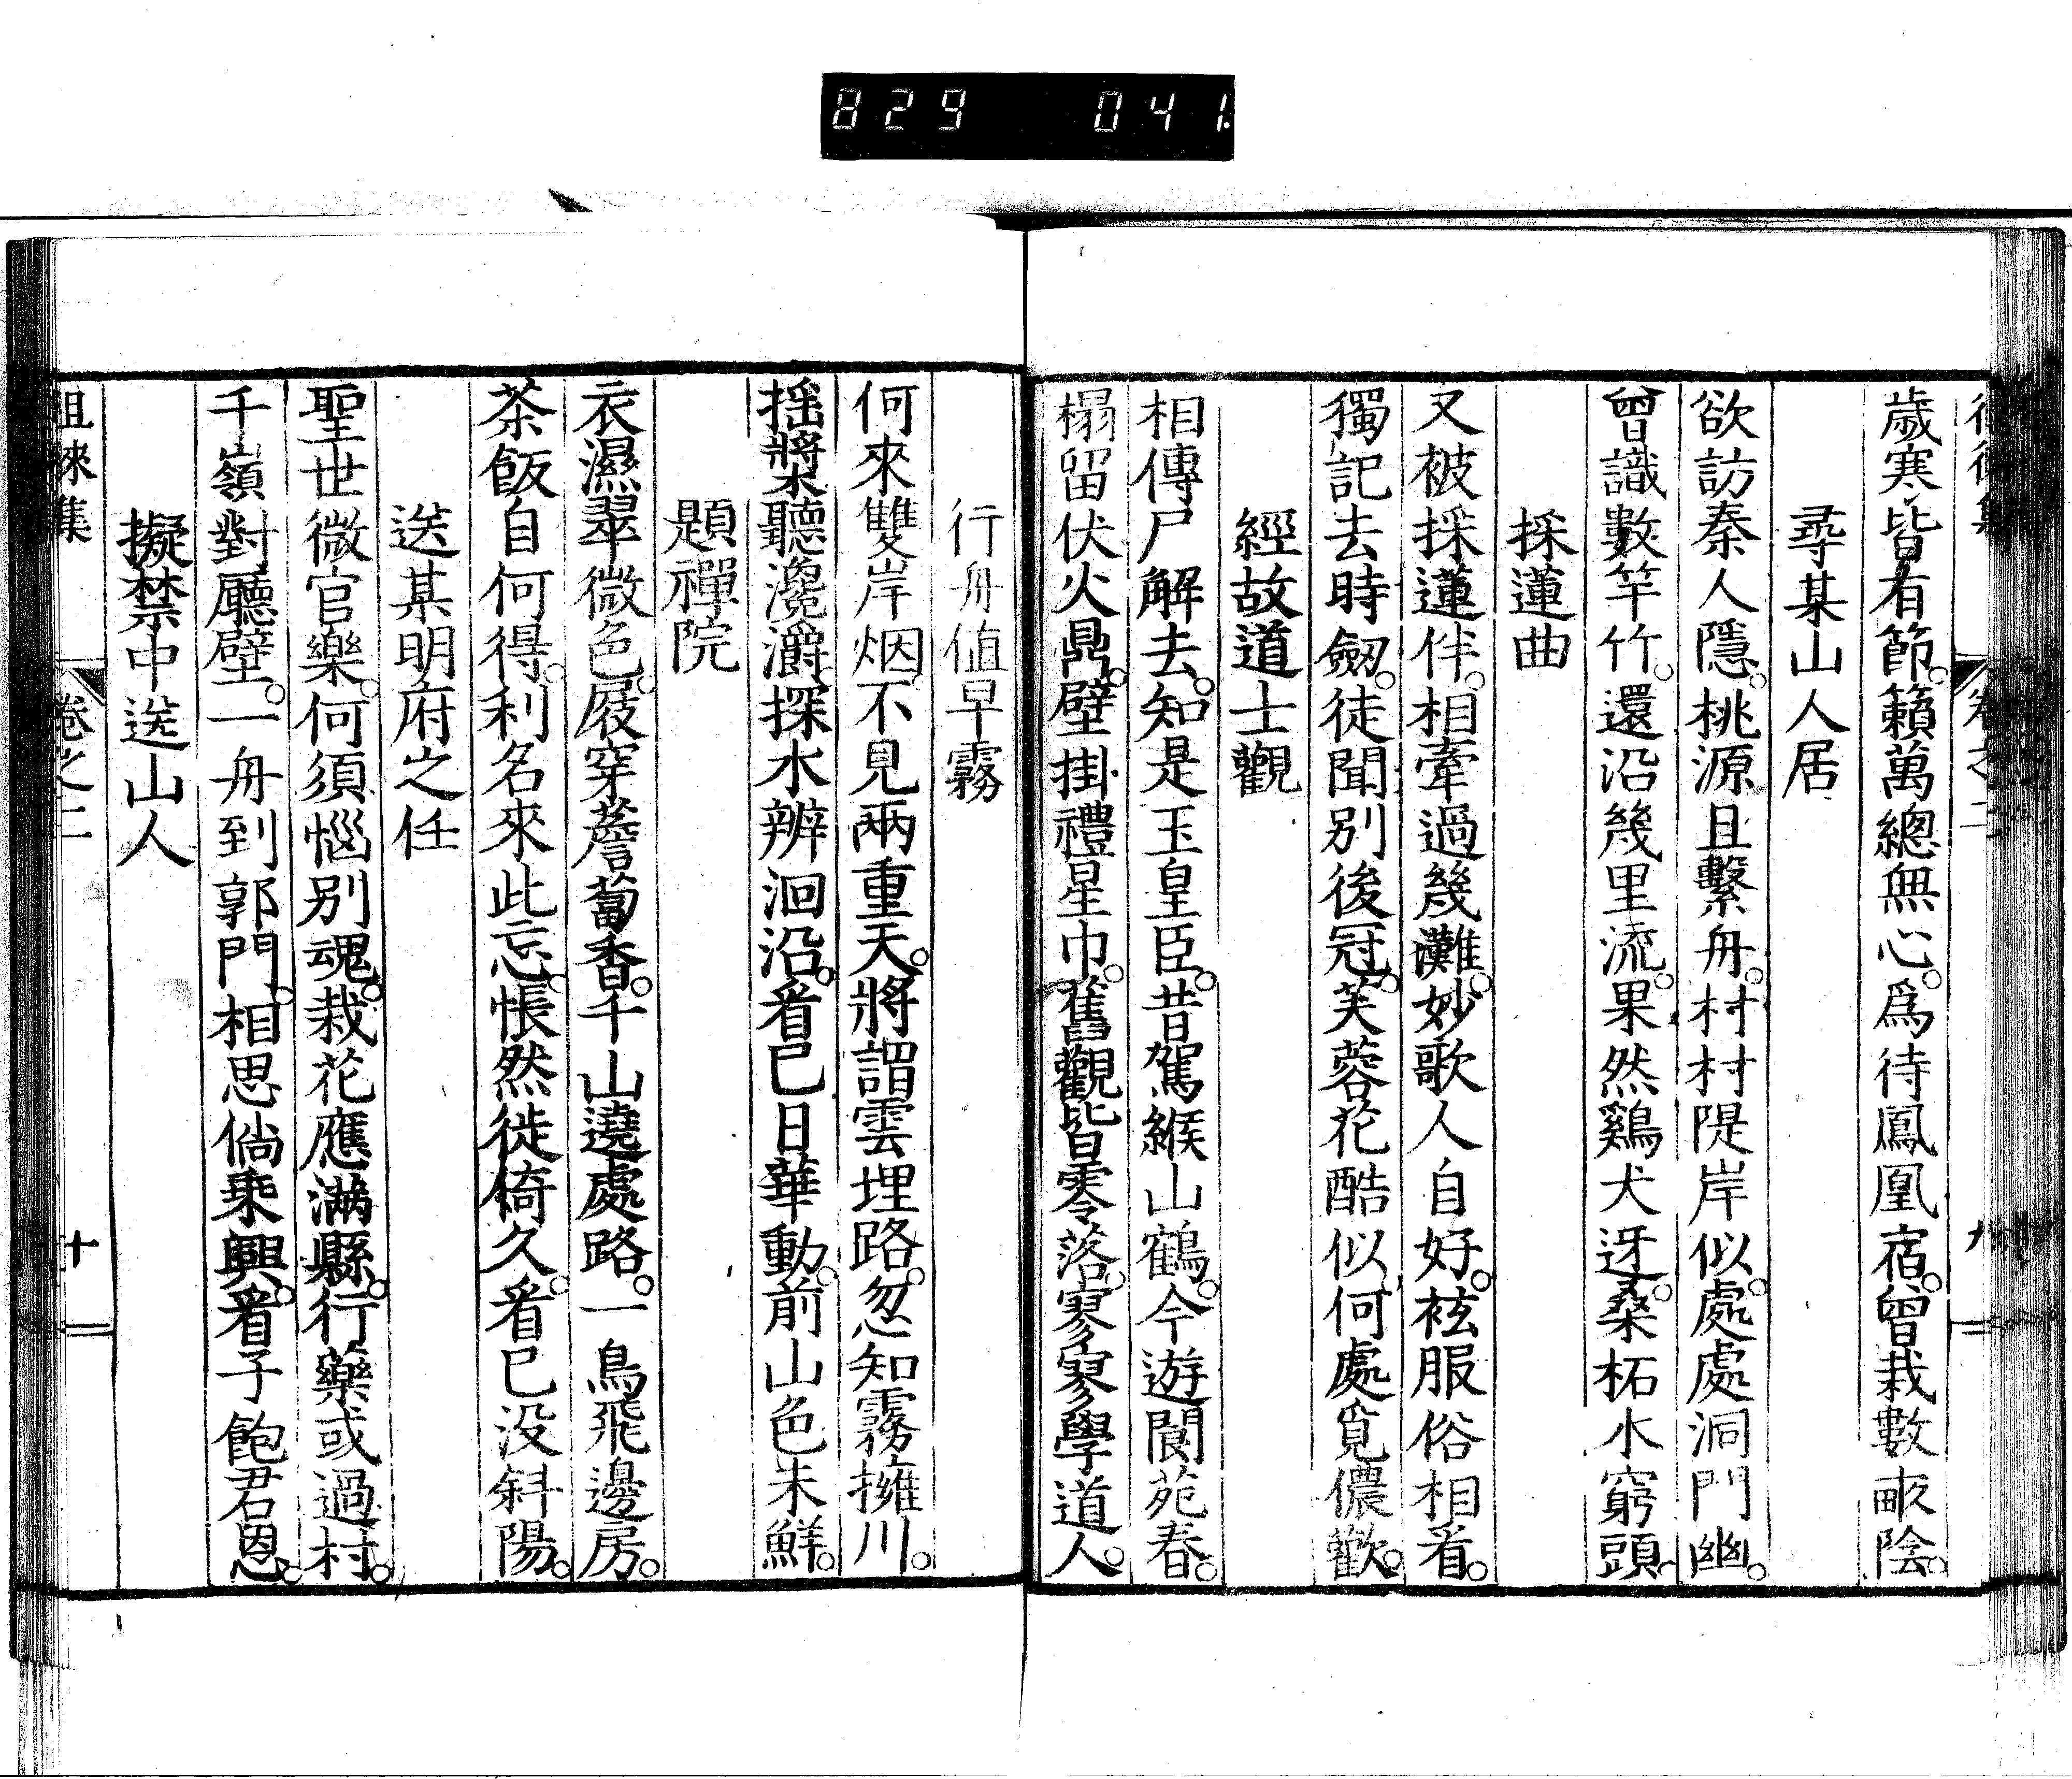 829 041.
歲寒皆有節。籟萬總無心。爲待鳳凰宿。曾栽數畝陰。
尋某山人居
欲訪秦人隱。桃源且繫舟。村村隄岸似。處處洞門幽。
曾識數竿竹。還沿幾里流。果然鷄犬迓。桑柘水窮頭。
採蓮曲
又被採蓮伴。相牽過幾灘。妙歌人自好。袨服俗相看。
獨記去時劒。徒聞別後冠。芙蓉花酷似。何處覓儂歡。
經故道士觀
相傳尸解去。知是玉皇臣。昔駕緱山鶴。今遊閬苑春。
榻留伏火鼎。壁掛禮星巾。舊觀皆零落。寥寥學道人。
行舟值早霧
何來雙岸烟。不見兩重天。將謂雲埋路。忽知霧擁川。
搖槳聽瀺灂。探水辨洄沿。看已日華動。前山色未鮮。
題禪院
衣濕翠微色。屐穿薝蔔香。千山遶處路。一鳥飛邊房。
茶飯自何得。利名來此忘。悵然徙倚久。看已没斜陽。
送某明府之任
聖世微官樂。何須惱別魂。栽花應滿縣。行藥或過村。
千嶺對廳壁。一舟到郭門。相思倘乘興。看子飽君恩。
擬禁中送山人
徂徠集 卷之二 十